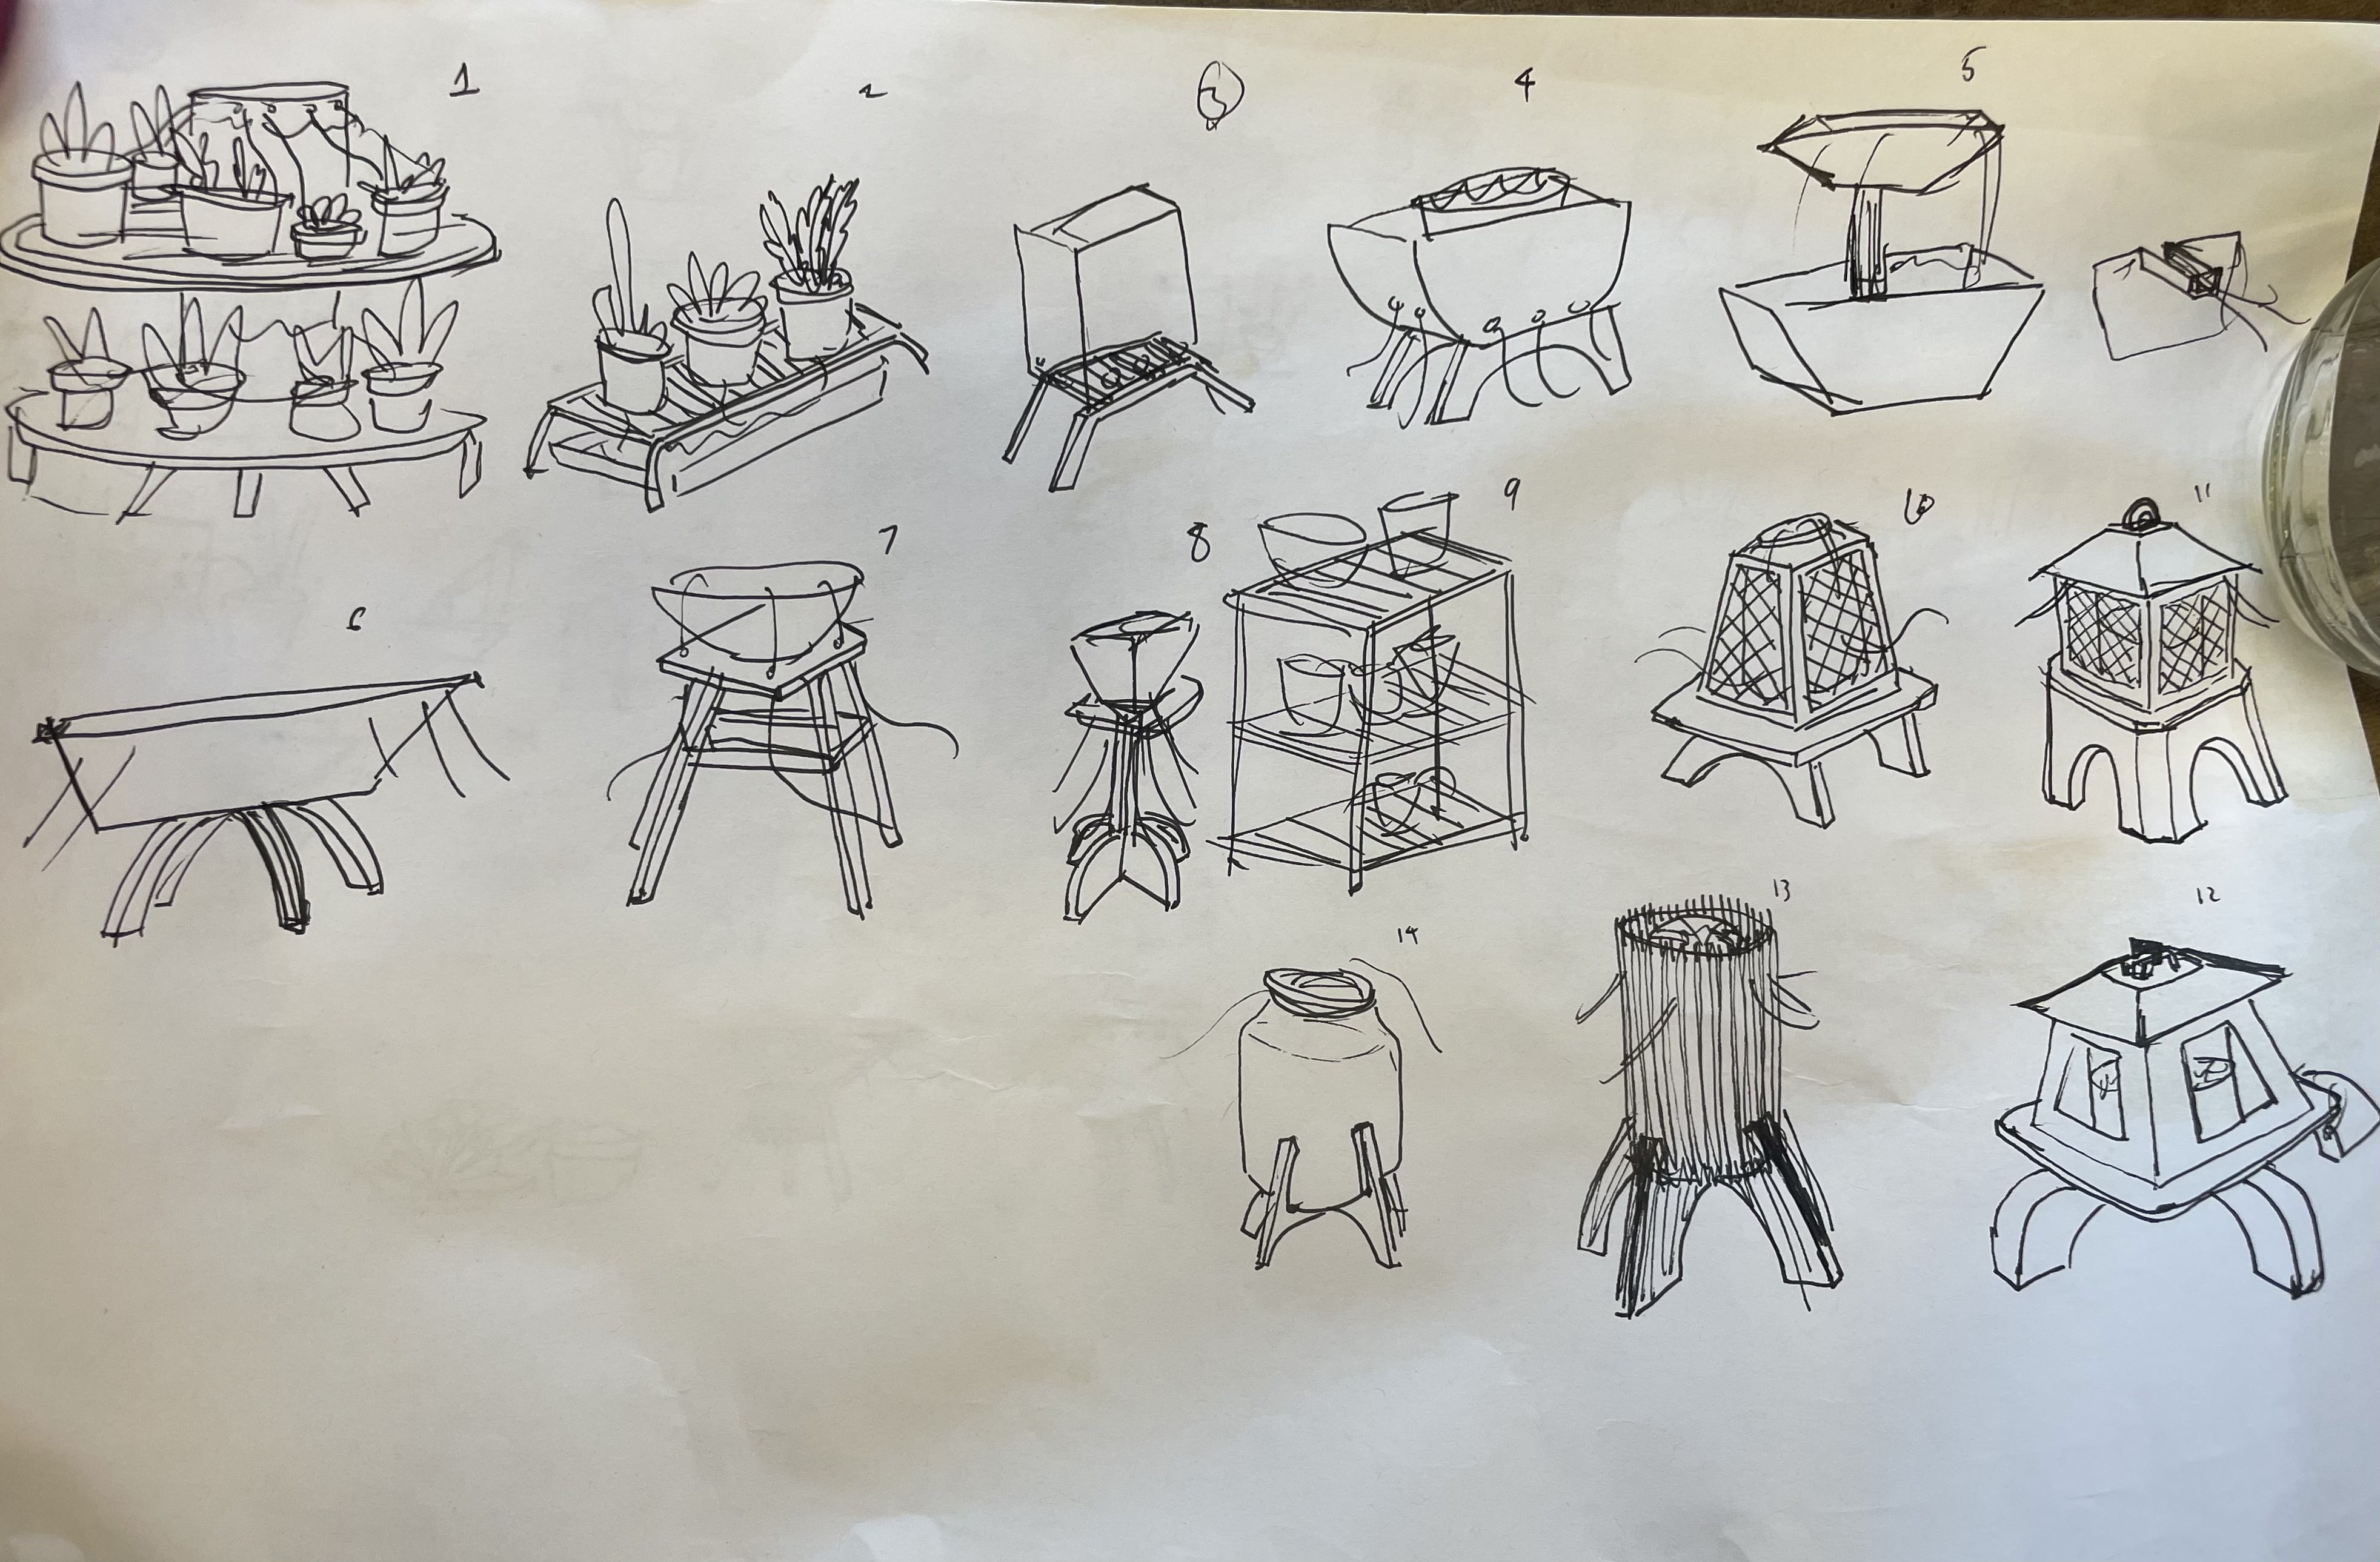 1
2
3
4
5
6
7
8
9
10
11
12
13
14